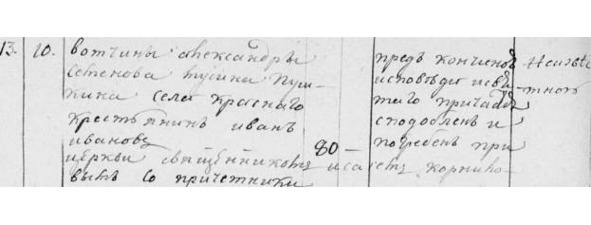 13. 10. вотчины Александры
Семенова Мусина Пуш-
кина села Краснаго
крестьянинъ Иванъ
Ивановъ
80 —
предъ кончиною
исповѣды и свя-
таго причаст
сподобленъ и
погребенъ при
Неизвѣ-
тного
церкви священникомъ исаіемъ Корнило-
вымъ со причетники